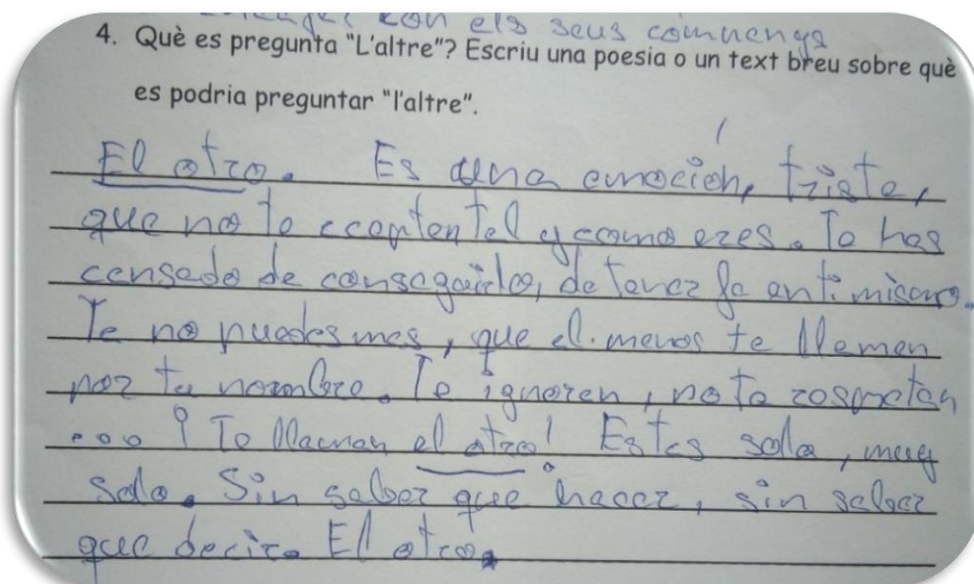 con els seus comuenys
4. Què es pregunta "L'altre"? Escriu una poesia o un text breu sobre què
es podria preguntar "l'altre".
El otro. Es una emoción, triste,
que no te ccepten tal y como eres. Te has
censado de conseguirlo, de tener fe en ti mismo.
Ye no puedes mes, que el menos te llemen
por tu nombre. Te ignoren, no te respeten
... ¡Te llaman el otro! Estes solo, muy
solo. Sin saber que hacer, sin saber
que decir. El otro.